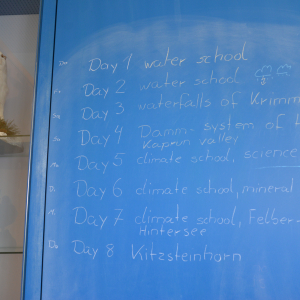 Do Day 1 water school
Day 2 water school
Day 3 waterfalls of Krimm
Day 4 Damm-system of
Kaprun valley
Day 5 climate school, science
Day 6 climate school, mineral
Day 7 climate school, Felber
Hintersee
Do Day 8 Kitzsteinhorn